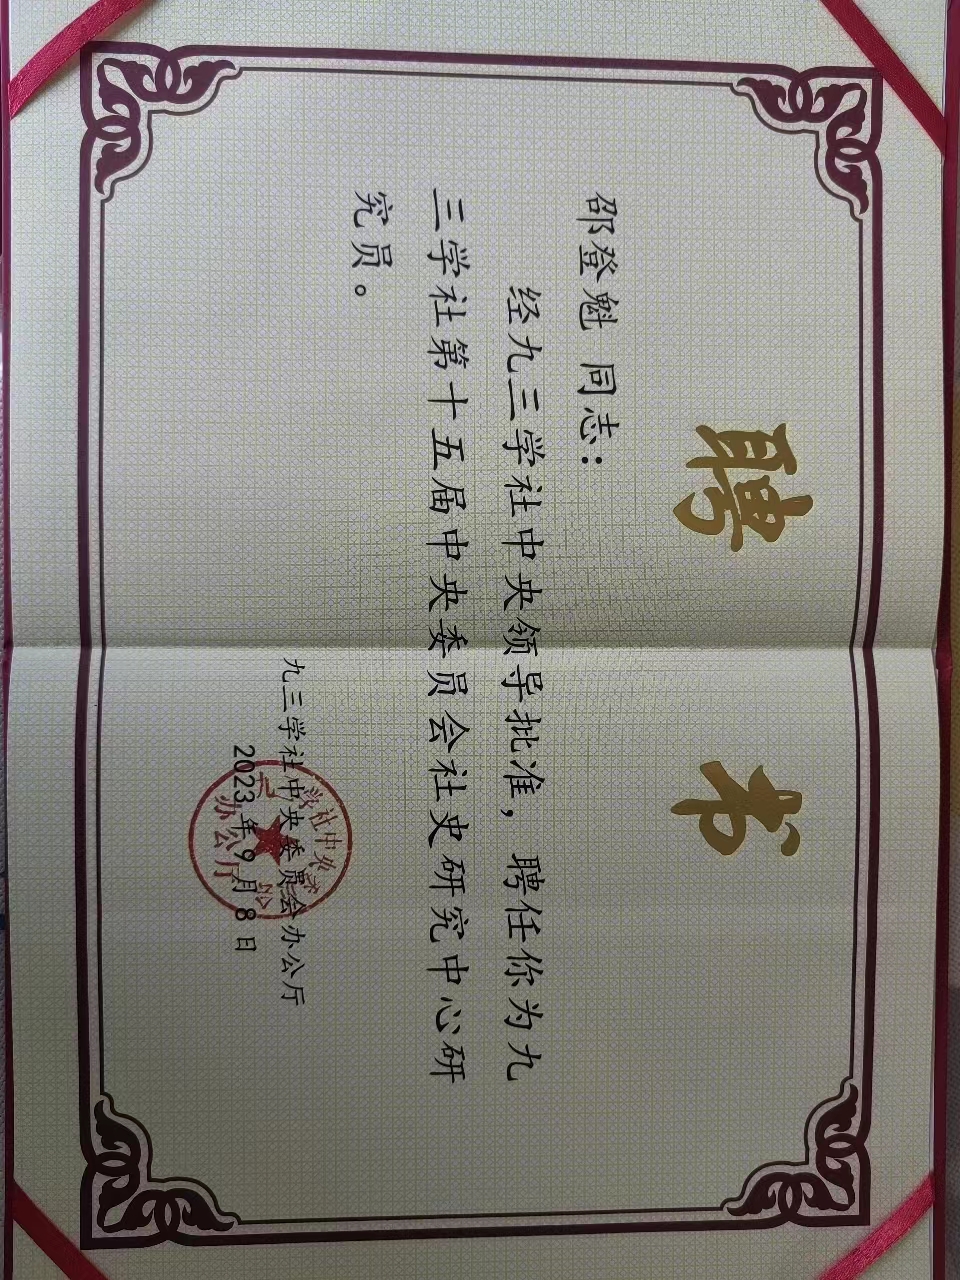 聘书
邵登魁 同志：
经九三学社中央领导批准，聘任你为九
三学社第十五届中央委员会社史研究中心研
究员。
九三学社中央委员会办公厅
2023年9月8日
九三学社中央委员会
办公厅